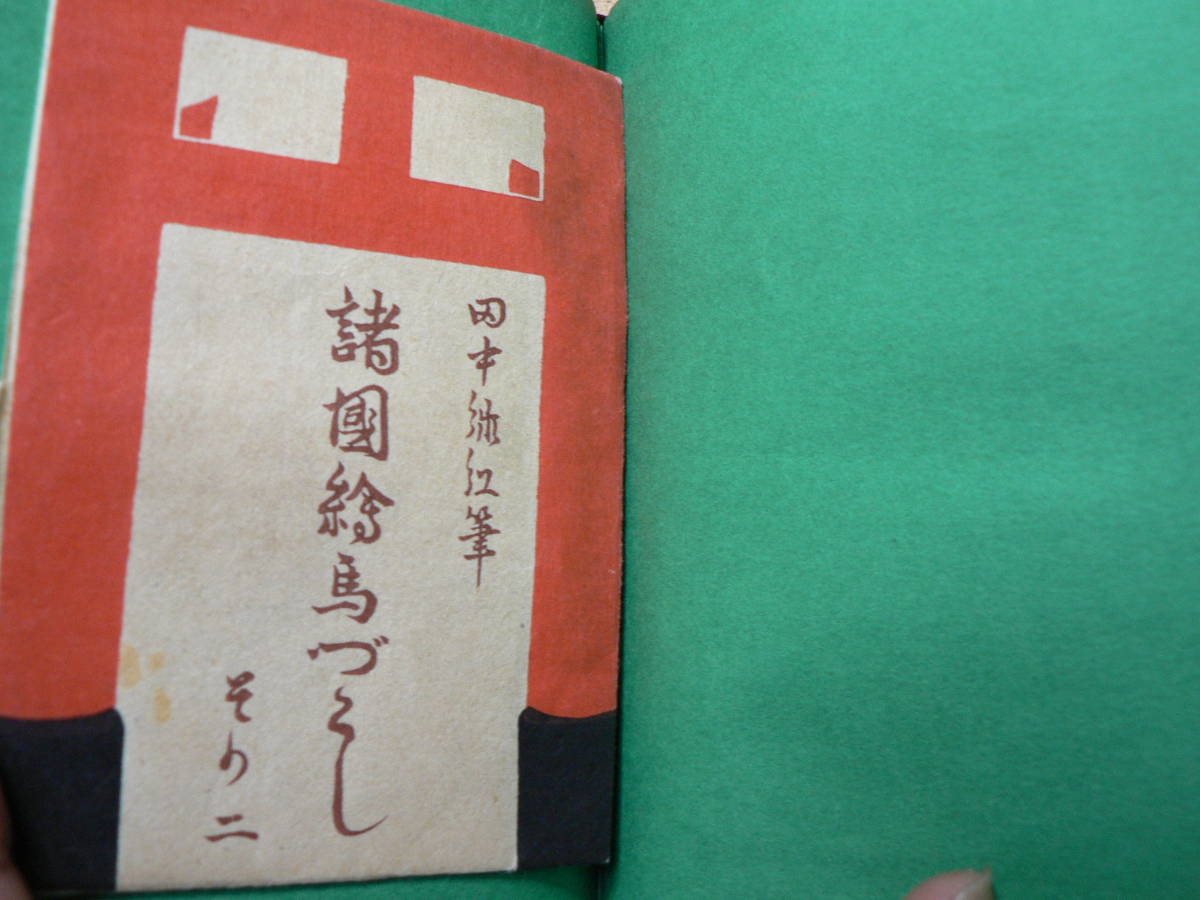 田中緑紅筆
諸國繪馬づくし
その二